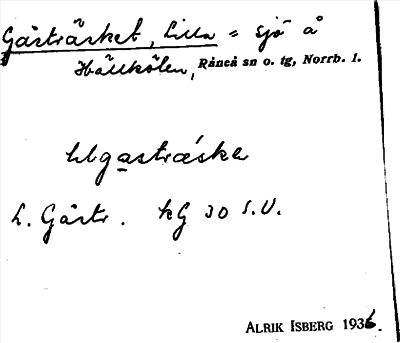 Gåsträsket, Lilla = sjö å
Hällkölen, Råneå sn o. tg, Norrb. l.
lilgastræske
L. Gåstr. kG 30 S.V.
ALRIK ISBERG 1936.